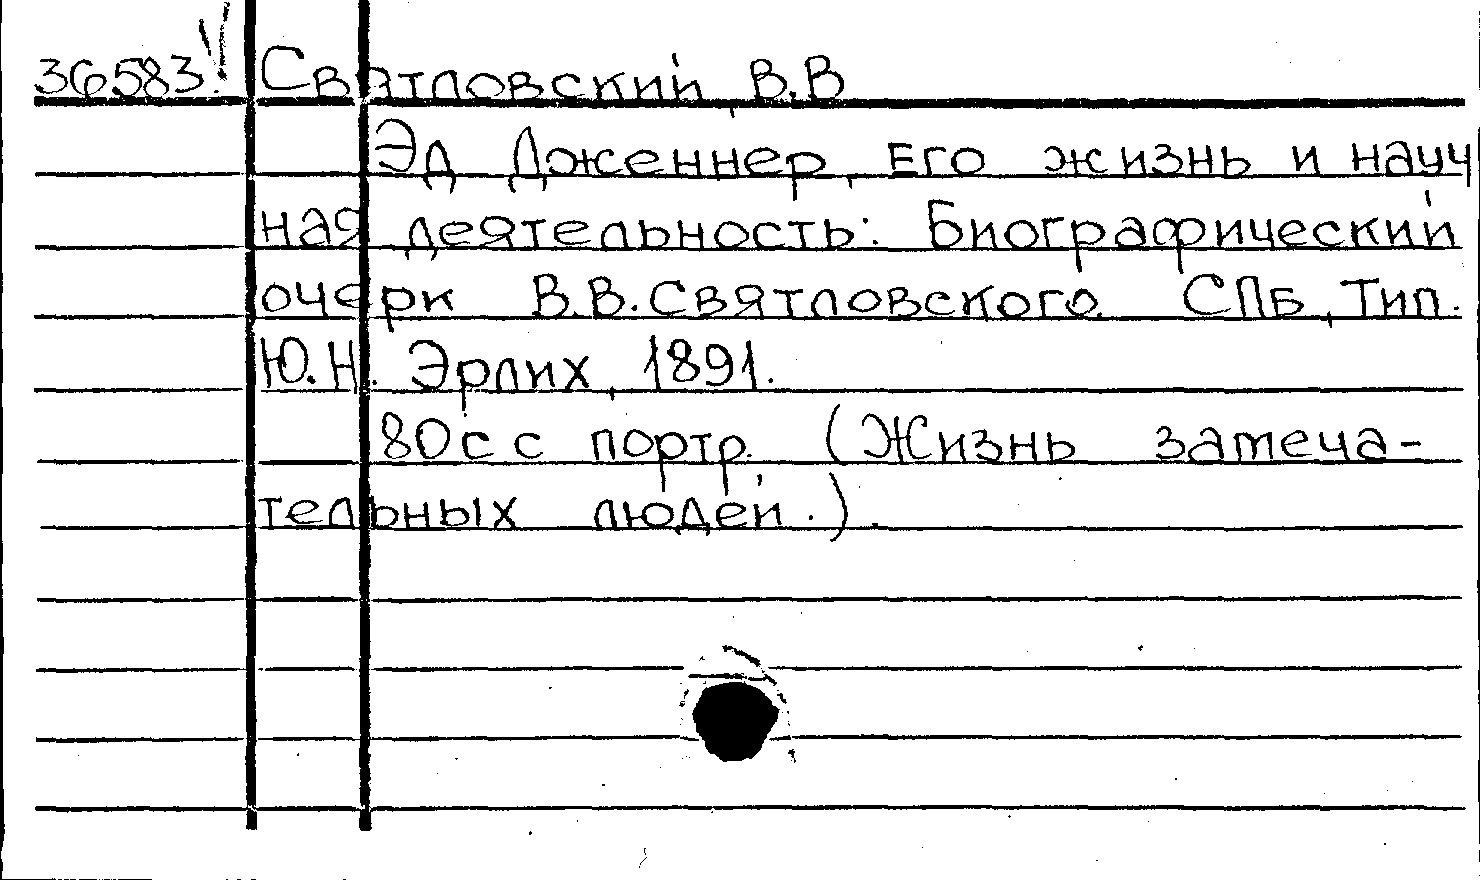 36583!! Святловский, В.В
Эд Дженнер, Его жизнь и науч
ная деятельность: Биографический
очерк В.В.Святловского. СПБ, Тип.
Ю.Н. Эрлих, 1891.
80с с портр. (Жизнь замеча-
тельных людей.).